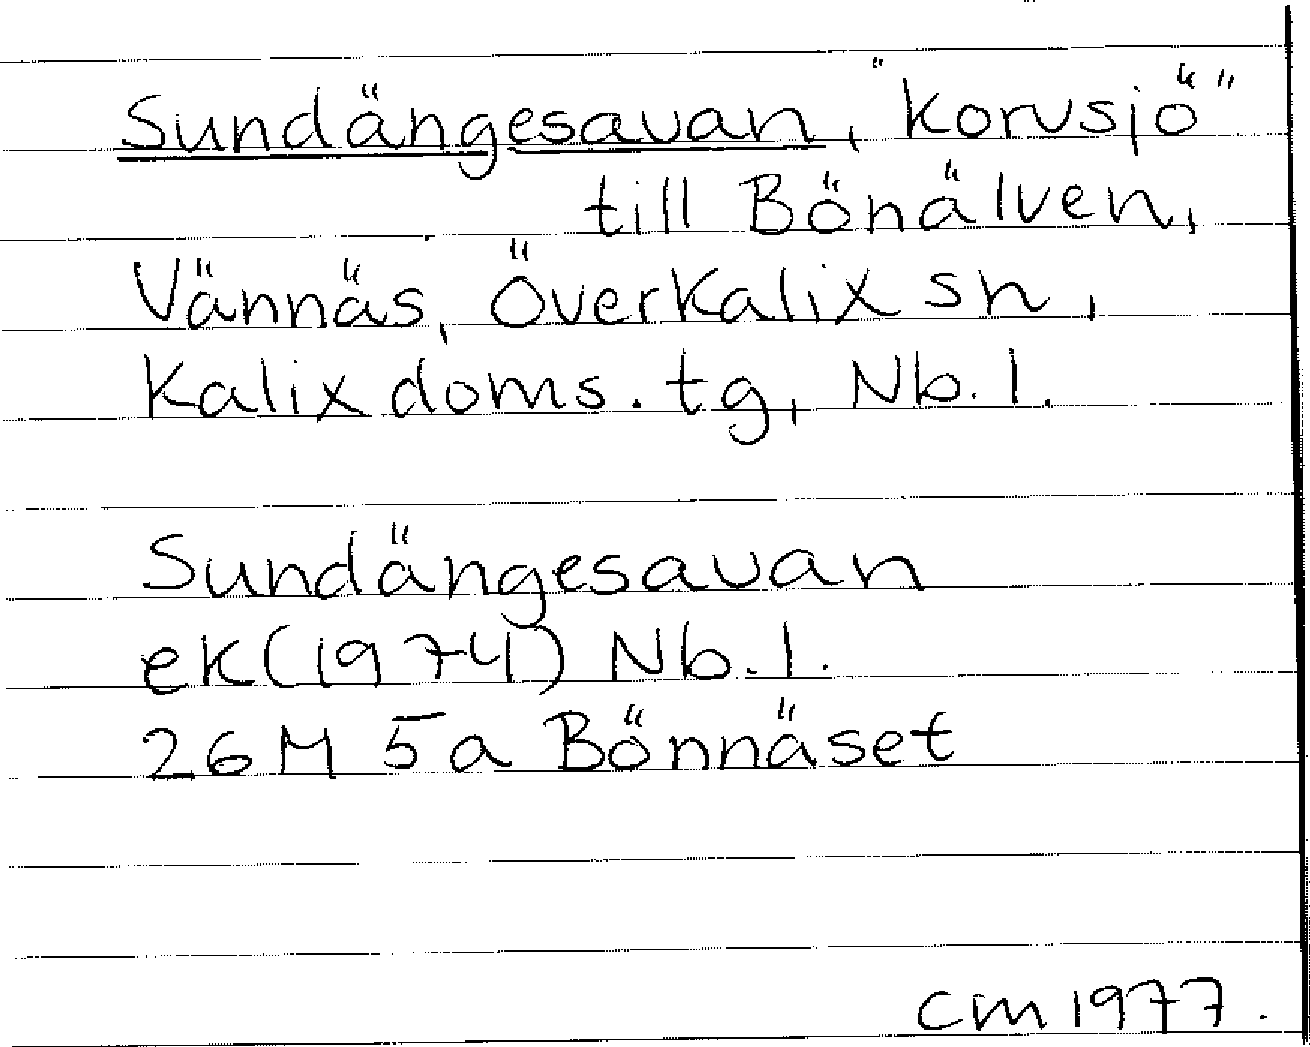 Sundängesavan, "korvsjö"
till Bönälven,
Vännäs, Överkalix sn,
Kalix doms. tg, Nb. l.
Sundängesavan
ek(1974) Nb. l.
26M 5a Bönnäset
CM 1977.